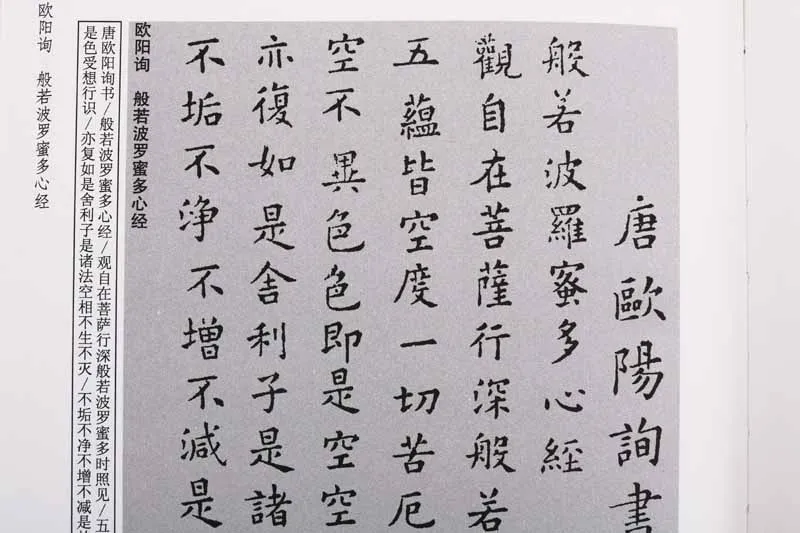 唐歐陽詢書
般若波羅蜜多心經
觀自在菩薩行深般若
五蘊皆空度一切苦厄
空不異色色即是空空
亦復如是舍利子是諸
不垢不淨不增不減是
欧阳询 般若波罗蜜多心经
唐欧阳询书/般若波罗蜜多心经/观自在菩萨行深般若波罗蜜多时照见/五
是色受想行识/亦复如是舍利子是诸法空相不生不灭/不垢不净不增不减是
欧阳询 般若波罗蜜多心经